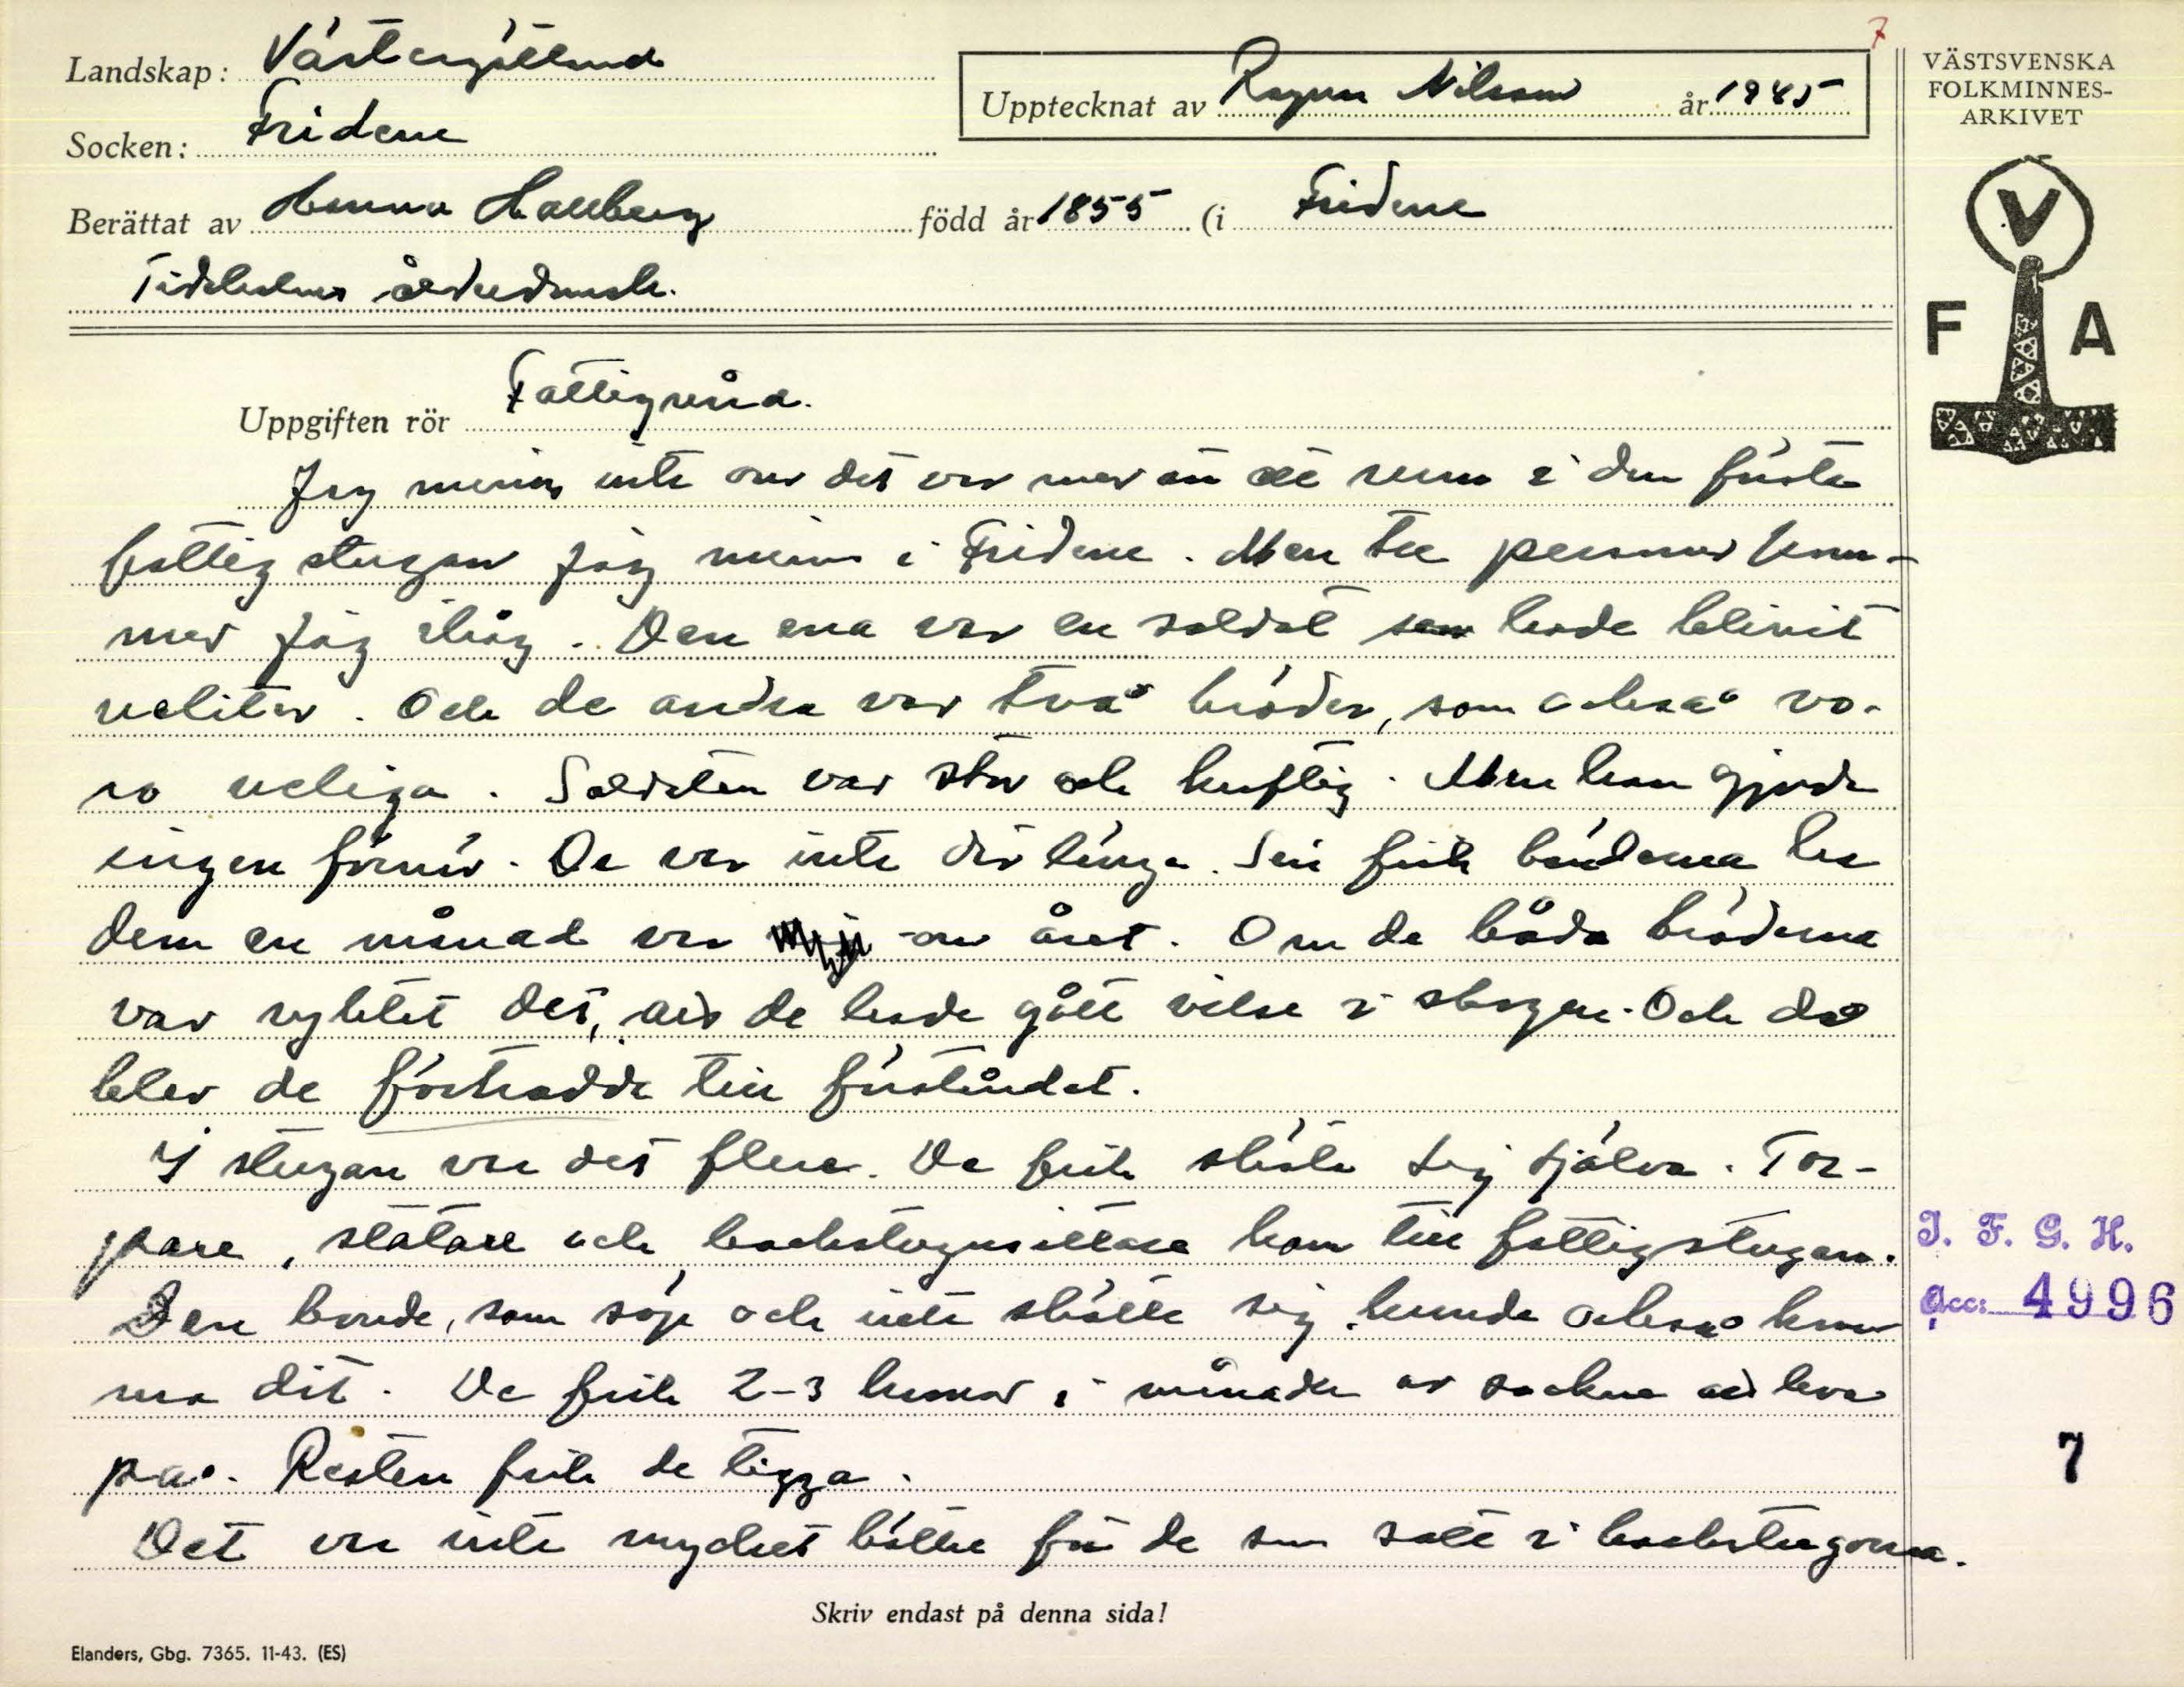 7
Landskap: Västergötland
Upptecknat av Ragnar Nilsson år 1945
VÄSTSVENSKA
FOLKMINNES-
ARKIVET
Socken: Fridene
Berättat av Hanna Hallberg född år 1855 (i Fridene
Tidaholms ålderdomsh.
V
F A
Uppgiften rör Fattigvård.
Jag minns inte om det var mer än ett rum i den första
fattigstugan jag minns i Fridene. Men tre personer kom-
mer jag ihåg. Den ena var en soldat som hade blivit
. Och de andra var två bröder, som också vo-
ro . Soldaten var stor och kraftig. Men han gjorde
ingen förnär. De var inte där länge. Sen fick bönderna ha
dem en månad var om året. Om de båda bröderna
var ryktet det, att de hade gått vilse i skogen. Och då
blev de förtradde till förståndet.
I stugan var det flera. De fick sköta sig själva. Tor-
pare, statare och backstugusittare kom till fattigstugan.
Den bonde, som söp och inte skötte sig kunde också kom
ma dit. De fick 2-3 kronor i månaden av socknen att leva
på. Resten fick de tigga.
Det var inte mycket bättre för de som satt i backstugorna.
I. F. G. H.
Acc: 4996
7
Skriv endast på denna sida!
Elanders, Gbg. 7365. 11-43. (ES)